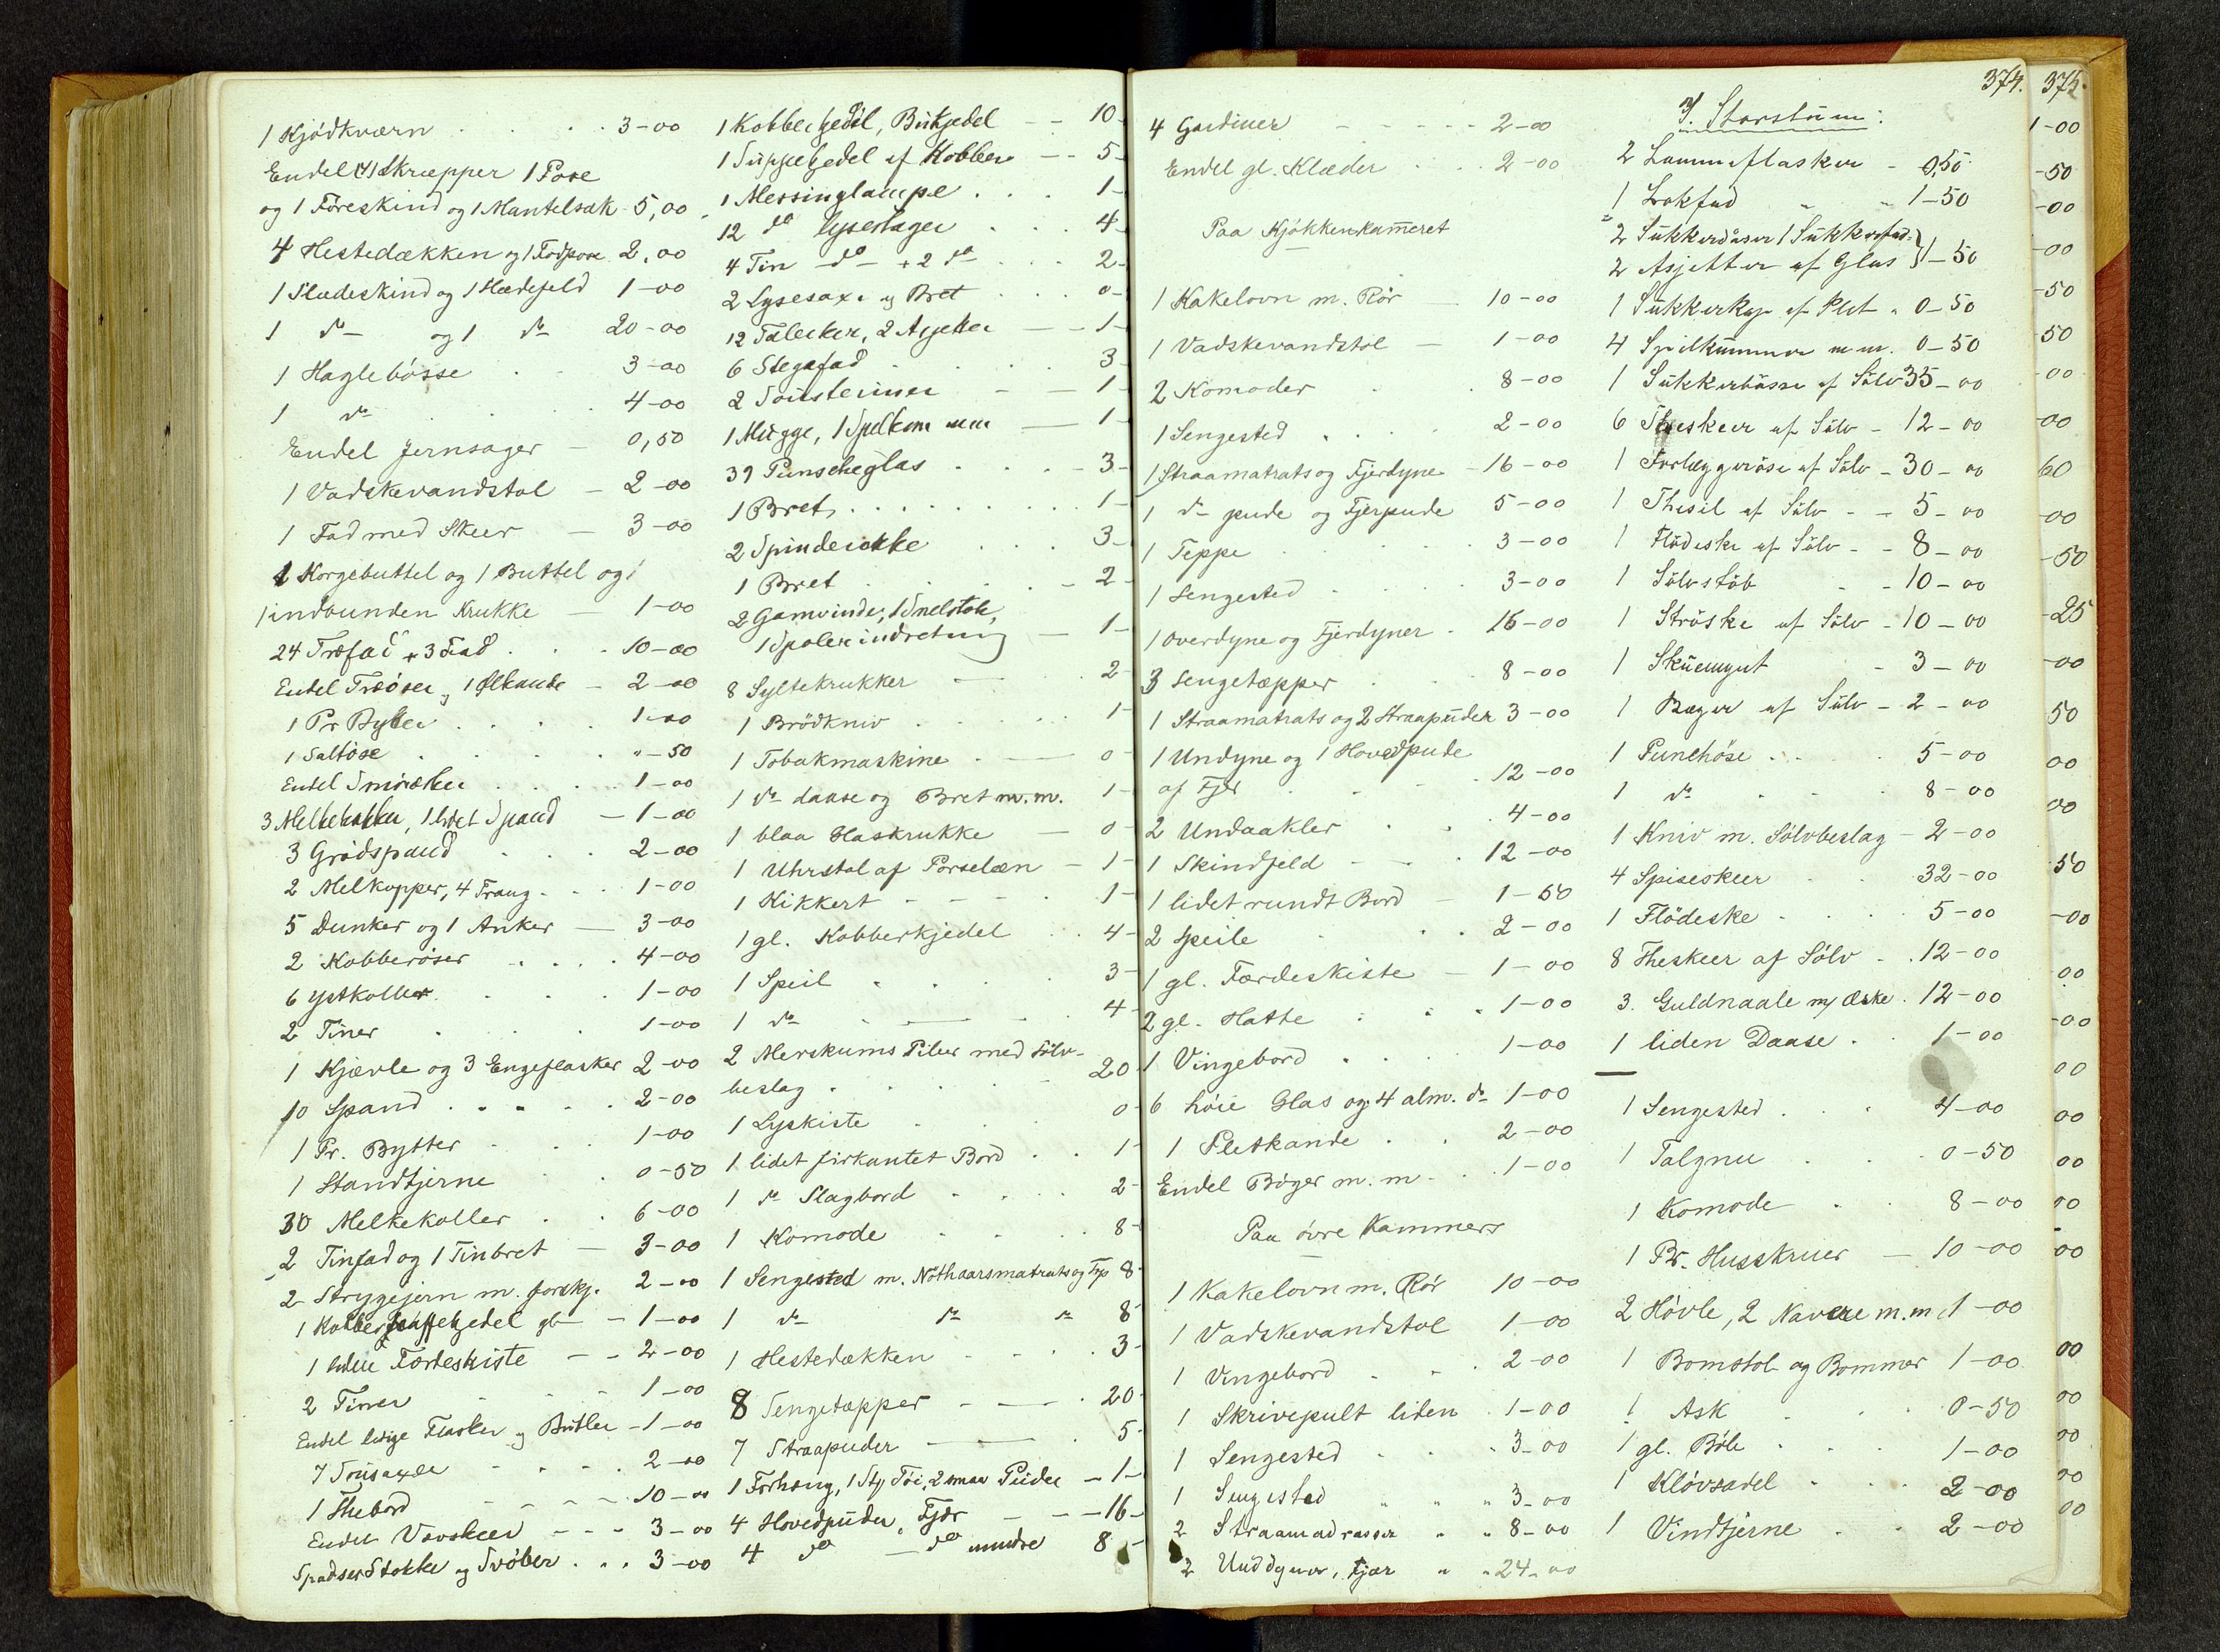 1 Kjödkværn . . . . 3-00
Endel (4) Skræpper 1 Pose
og 1 Föreskind og 1 Mantelsæk - 5,00
4 Hestedækken og 1 Fodpose 2,00
1 Sladeskind og 1 Hædefeld 1-00
1 do og 1 do 20-00
1 Haglebösse . . 3-00
1 do . . . . 4-00
Endel Jernsager — 0,50
1 Vadskevandstol — 2-00
1 Fad med Skeer — 3-00
1 Korgebuttel og 1 Buttel og
1 indbunden Krukke — 1-00
24 Træfad + 3 Fad . . . 10-00
Endel Træöser og 1 Ölkande — 2-00
1 Pr Bytter . . . . 1-00
1 Saltöse . . . . . "-50
Endel Smöræsker . . . 1-00
3 Melkekolker, 1 lidet Spand — 1-00
3 Grödspand . . . 2-00
2 Melkopper, 4 Traug . . . 1-00
5 Dunker og 1 Anker — 3-00
2 Kobberöser . . . . 4-00
6 Ystkoller . . . . 1-00
2 Tiner . . . . 1-00
1 Kjævle og 3 Engeflasker 2-00
10 Spand . . . . . 2-00
1 Pr. Bytter . . . 1-00
1 Standtjerne . . 0-50
30 Melkekoller . . 6-00
2 Tinfad og 1 Tinbret — 3-00
2 Strygejern m. forskj. 2-00
1 Kobberkaffekjedel gl — 1-00
1 liden Færdeskiste — - 2-00
2 Tiner - - - 1-00
Endel ledige Flasker og Butler - 1-00
7 - - . . 2-00
1 Thebord - - - - 10-00
Endel Vævskeer - - - 3-00
Spadser Stokke og Svöber . . . 3-00
1 Kobberkjedel, Bükjedel — - 10-
1 Suppekjedel af Kobber — - 5-
1 Messinglampe . . . 1-
12 do lysestager . . . 4-
4 Tin - do - + 2 do . . . 2-
2 Lysesaxe og Bret . . . 0-
12 Talerker, 2 Asjetter — - 1-
6 Stegefad . . . . . 3
2 — — 1-
1 Mugge, 1 Spilkom m m — 1-
39 Punscheglas . . . - 3-
1 Bret . . . . . . . . . 1-
2 Spinderokke . . . 3-
1 Bret . . . . . - 2-
2 Garnvinder, 1 Snelstok,
1 Spoleindretning — 1-
8 Syltekrukker — . 2-
1 Brödkniv . . . . . . 1-
1 Tobakmaskine . — 0-
1 do daase og Bret m. m. 1-
1 blaa Haskrukke — 0-
1 Uhrstol af Porselæn — 1-
1 Kikkert - - - - . 1-
1 gl. Kobberkjedel . . 4-
1 Speil . . . . 3-
1 do . — . 4-
2 Merskums Piber med Sölv-
beslag . . . . - 20
1 Lyskiste . . . . 0-
1 lidet firkantet Bord . . 1-
1 do Slagbord . . . . 2-
1 Komode . . . . 8-
1 Sengested m. Nöthaarsmatrats og Tep 8-
1 do do do 8-
1 Hestedækken - - - . 3-
8 Sengetæpper - — . 20
7 Straapuder — . 5-
1 Forhæng, 1 Töi, 2 smaa Puder — 1-
4 Hovedpuder, Fjær — - - 16-
4 do — do mindre 8-
374.
4 Gardiner - - - - - 2-00
Endel gl. Klæder . . 2-00
Paa Kjökkenkameret
1 Kakelovn m. Rör — 10-00
1 Vadskevandstol — 1-00
2 Komoder . . 8-00
1 Sengested . . . . 2-00
1 Straamatrats og Fjerdyne - 16-00
1 do pude og Fjerpude 5-00
1 Teppe . . . . . 3-00
1 Sengested . . . . 3-00
1 Overdyne og Fjerdyner . 16-00
3 Sengetæpper . . 8-00
1 Straamatrats og 2 Straapuder 3-00
1 Undyne og 1 Hovedpude
af Fjer . . . . 12-00
2 Undaakler . . . 4-00
1 Skindfeld — . 12-00
1 lidet rundt Bord — 1-50
2 Speile . . . 2-00
1 gl. Færdeskiste — 1-00
2 gl. Hatte . . . 1-00
1 Vingebord . . . . 1-00
6 höie Glas og 4 alm. do 1-00
1 Pletkande . . 2-00
Endel Böger m. m - . . 1-00
Paa övre Kammers
1 Kakelovn m. Rör 10-00
1 Vadskevandstol 1-00
1 Vingebord . . . 2-00
1 Skrivepult liden . 1-00
1 Sengested . . . 3-00
1 Sengested " " " 3-00
2 Straamadrasser " " 8-00
2 Unddyner, Fjær " " 24-00
3. Storstüen:
2 Lommeflasker - 0,50
1 Lokfad " " 1-50
2 Sukkerdåser 1 Sukkerfad
2 Asjetter af Glas } 1-50
1 Sukkerkop af Plet . 0-50
4 Spilkummer m m. 0-50
1 Sukkerbösse af Sölv 35-00
6 Theskeer af Sölv - 12-00
1 Forlæggeröse af Sölv - 30-00
1 Thesil af Sölv - - 5-00
1 Flödeske af Sölv - - 8-00
1 Sölvstöb - - 10-00
1 Ströske af Sölv - 10-00
1 Skuemynt - 3-00
1 Bæger af Sölv - 2-00
1 Punchöse . . . 5-00
1 do . . . . 8-00
1 Kniv m. Sölvbeslag - 2-00
4 Spiseskeer . . 32-00
1 Flödeske . . . . 5-00
8 Theskeer af Sölv - . 12-00
3. Guldnaale m/ Æske . 12-00
1 liden Daase . . 1-00
1 Sengested . . . 4-00
1 Talgnu . . . 0-50
1 Komode . . . 8-00
1 Pr. Husskruer — 10-00
2 Hövle, 2 Navere m.m, 1-00
1 Bomstol og Bommer 1-00
1 Ask . . . . 0-50
1 gl. Böle . . . 1-00
1 Klövsadel . . . 2-00
1 Vindtjerne . . 2-00
375.
1-00
-50
-00
-00
-50
50
-00
-00
60
-00
-50
-25
-00
50
00
00
50
-00
00
-00
00
00
00
00
00
00
00
00
00
00